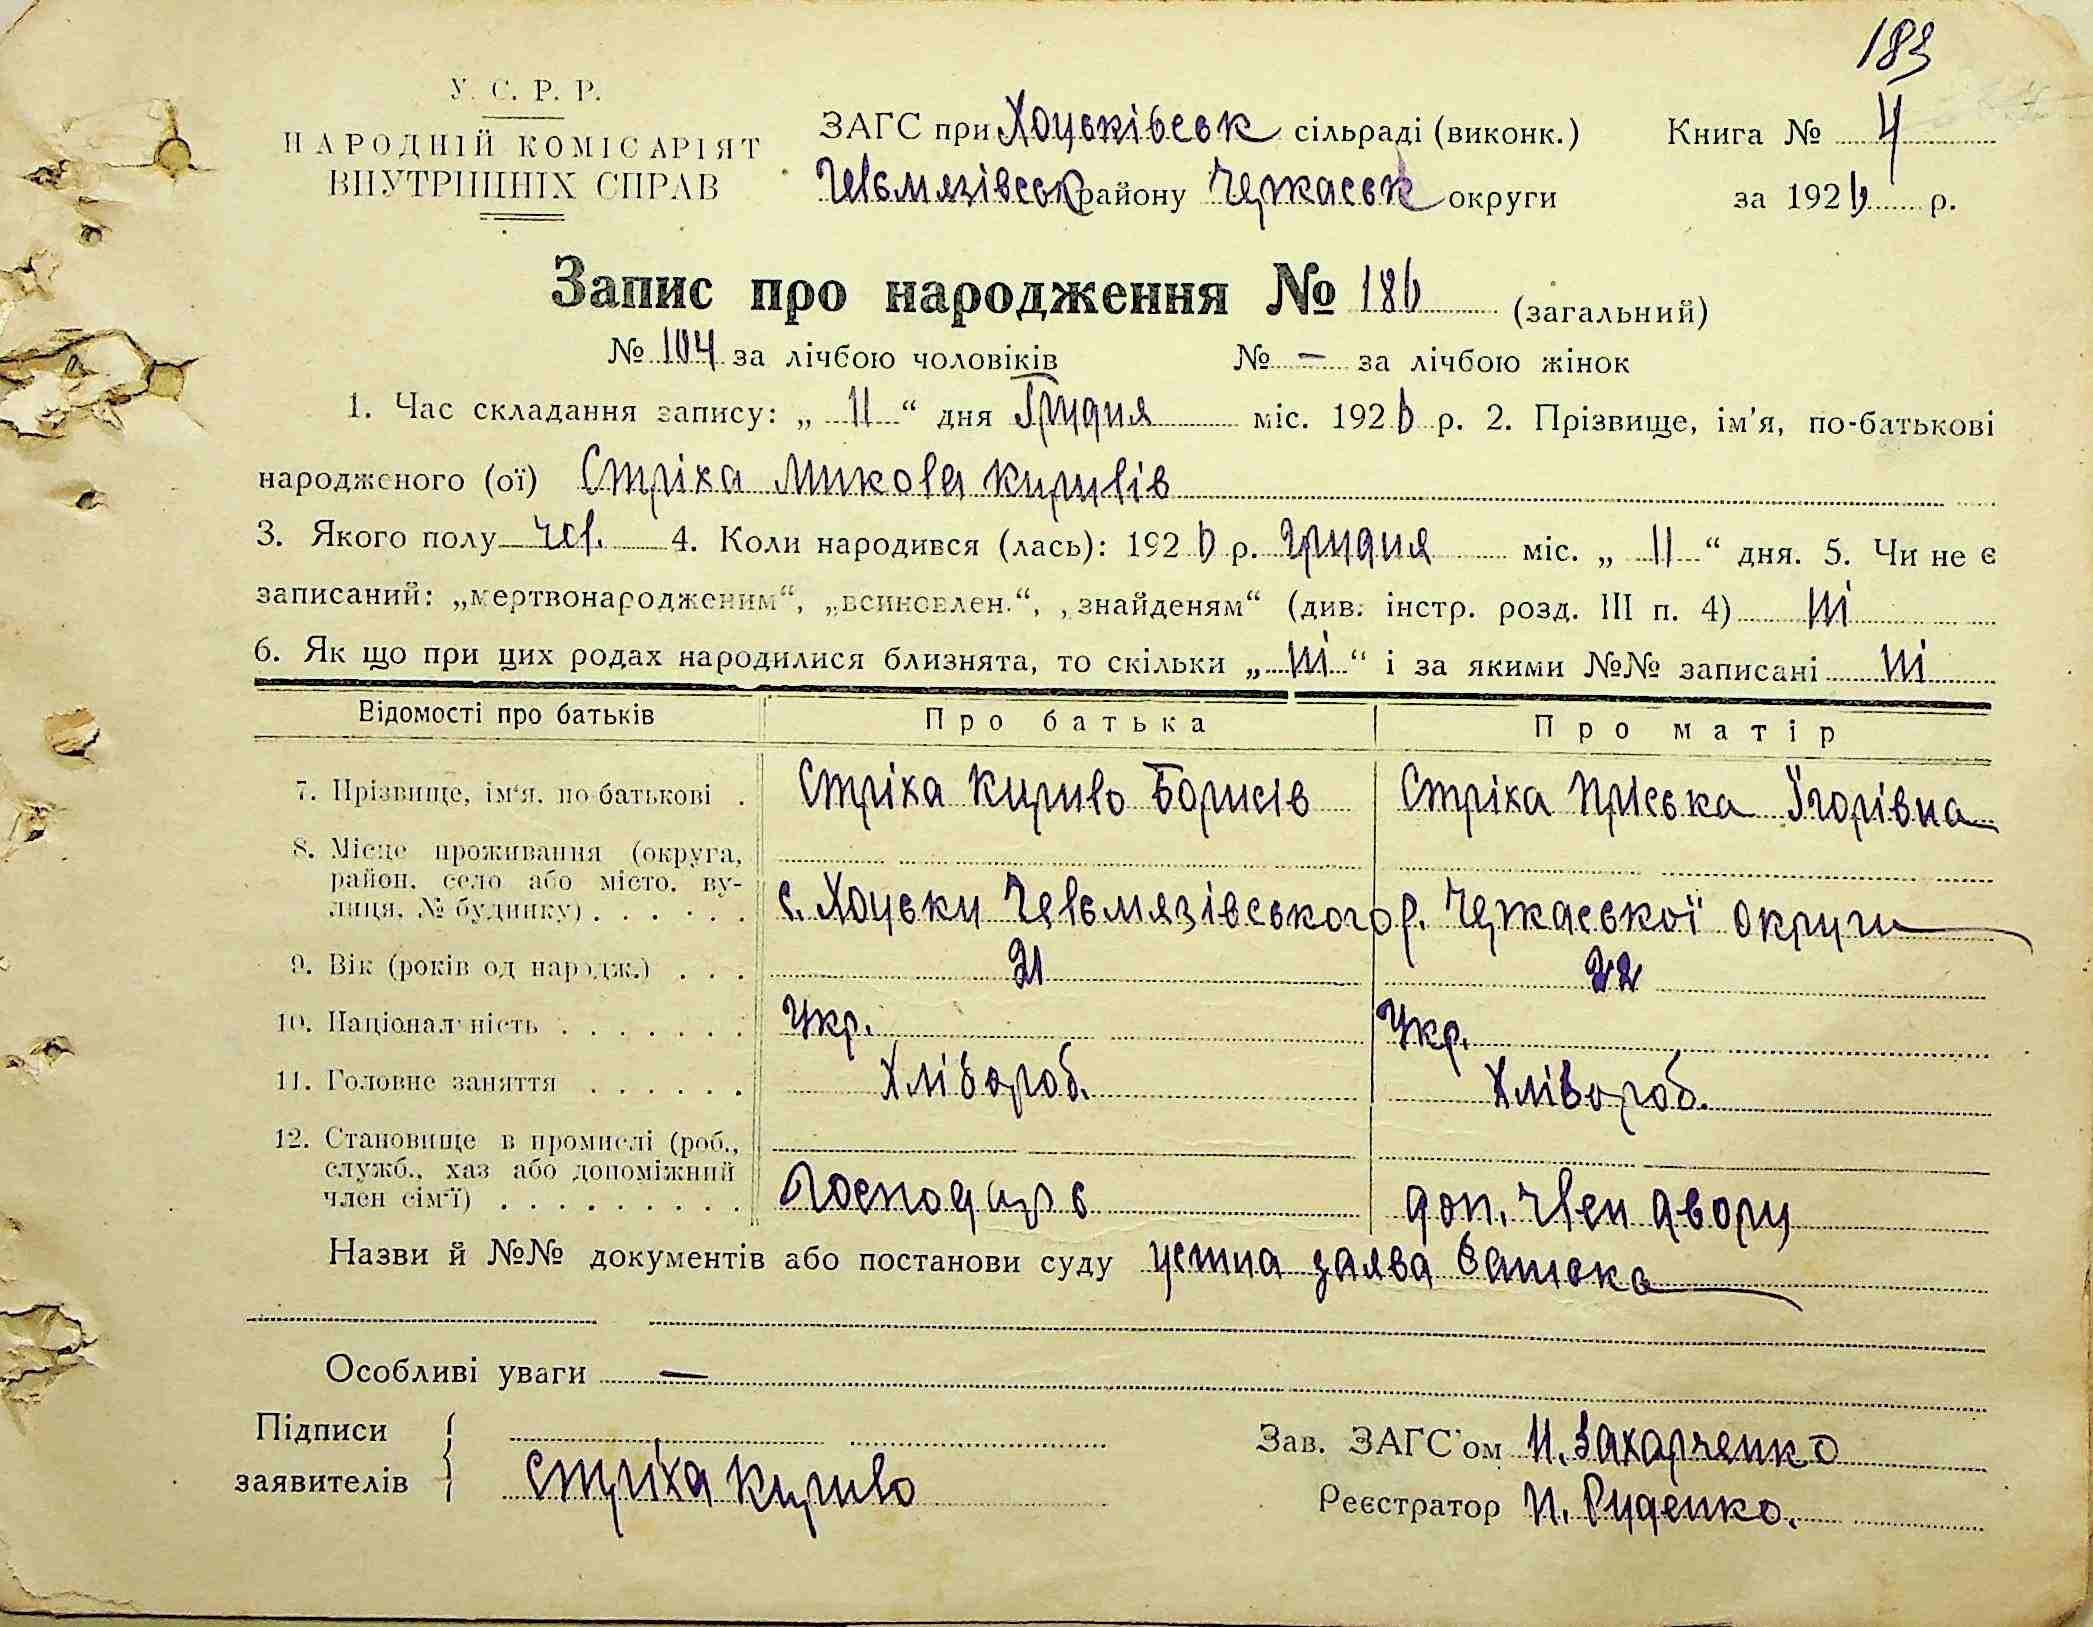 183
У. С. Р. Р.
НАРОДНІЙ КОМІСАРІЯТ
ВНУТРІШНІХ СПРАВ
ЗАГС при Хоцьківськ сільраді (виконк.)
Гельмязівськ району Черкаськ округи
Книга № 4
за 1926 р.
Запис про народження № 186 (загальний)
№ 104 за лічбою чоловіків № – за лічбою жінок
1. Час складання запису: „ 11 “ дня Грудня міс. 1926 р. 2. Прізвище, ім'я, по-батькові
народженого (ої) Стріха Микола Кирилів
3. Якого полу чол. 4. Коли народився (лась): 1926 р. грудня міс. „ 11 “ дня. 5. Чи не є
записаний: „мертвонародженим“, „всиновлен.“, „знайденям“ (див. інстр. розд. III п. 4) ні
6. Як що при цих родах народилися близнята, то скільки „ ні “ і за якими №№ записані ні
Відомості про батьків Про батька Про матір
7. Прізвище, ім'я, по-батькові . Стріха Кирило Борисів Стріха Пріська Ігорівна
8. Місце проживання (округа,
район, село або місто, ву-
лиця, № будинку) . . . . . . с. Хоцьки Гельмязівського р. Черкаської округи
9. Вік (років од народж.) . . . 21 22
10. Національність . . . . . . . Укр. Укр.
11. Головне заняття . . . . . . Хлібороб. Хлібороб.
12. Становище в промислі (роб.,
служб., хаз або допоміжний
член сім'ї) . . . . . . . . . Господарь доп. член двору
Назви й №№ документів або постанови суду устна заява батька
Особливі уваги —
Підписи
заявителів Стріха Кирило
Зав. ЗАГС'ом И. Захарченко
Реєстратор И. Руденко.